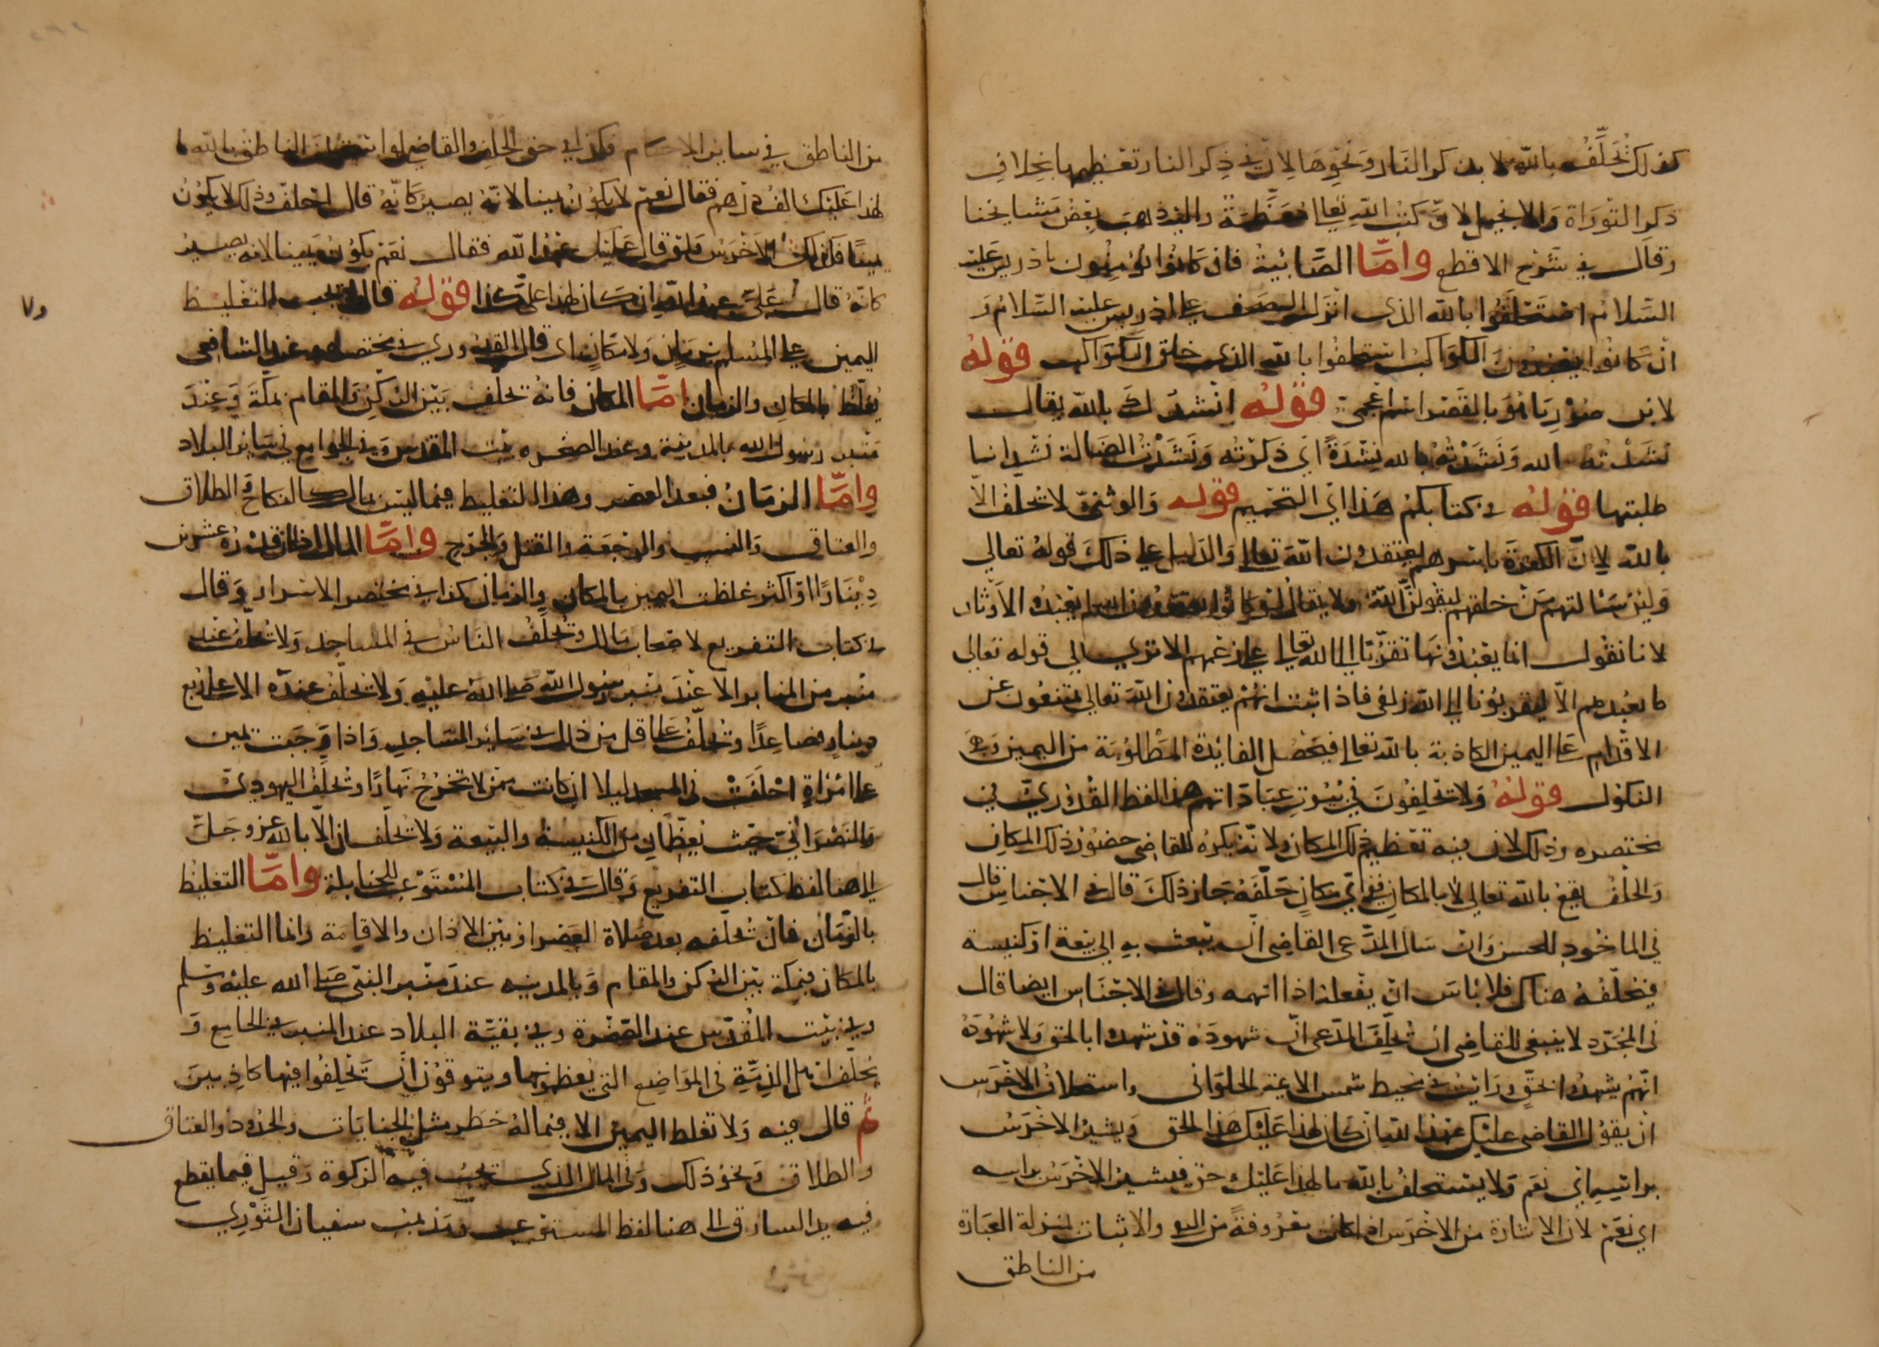 كذلك نحلفه بالله لا بذكر النار ونحوها لان في ذكر النار تعظيمها بخلاف
ذكر التوراة والانجيل لان كتب الله تعالى معظمة واليه ذهب بعض مشايخنا
وقال في شرح الاقطع واما الصابئية فان كانوا يؤمنون بادريس عليه
السلام استحلفوا بالله الذي انزل الصحف على ادريس عليه السلام و
ان كانوا يعبدون الكواكب استحلفوا بالله الذي خلق الكواكب قوله
لابن صوريا هو بالقصر اسم اعجمي قوله انشدك بالله يقال
نشدته الله ونشدته بالله نشدة اي ذكرته ونشدت الضالة نشدانا
طلبتها قوله في كتابكم هذا اي التحميم قوله والوثني لا نحلف الا
بالله لان الكفرة باسرهم يعتقدون الله تعالى والدليل على ذلك قوله تعالى
ولئن سئالتهم من خلقهم ليقولن الله ولا يقال لو كانوا يعتقدون الله لم تعبدوا الاوثان
لانا نقول انما يعبدونها تقربا الى الله تعالى على زعمهم الا ترى الى قوله تعالى
ما نعبدهم الا ليقربونا الى الله زلفى فاذا ثبت انهم يعتقدون الله تعالى يمتنعون عن
الاقدام على اليمين الكاذبة بالله تعالى فيحصل الفائدة المطلوبة من اليمين وهو
النكول قوله ولا تحلفون في بيوت عباداتهم هذا لفظ القدوري في
مختصره وذلك لان فيه تعظيم ذلك المكان ولانه يكره للقاضي حضور ذلك المكان
والحلف يقع بالله تعالى لا بالمكان ففي اي مكان حلفه جاز ذلك قال في الاجناس قال
في الماخوذ للحسن وان سال المدعي القاضي ان يبعث به الى بيعة او كنيسة
فيحلفه هناك فلا باس ان يفعل اذا اتهمه وقال في الاجناس ايضا قال
في المجرد لا ينبغي للقاضي ان يحلف المدعي ان شهوده قد شهدوا بالحق ولا شهوده
انهم شهدوا بحق ورايت في محيط شمس الائمة الحلواني واستحلاف الاخرس
ان يقول القاضي عليك عهد الله ان كان لهذا عليك هذا الحق ويشير الاخرس
براسه اي نعم ولا يستحلف بالله ما لهذا عليك حق فيشير الاخرس براسه
اي نعم لان الاشارة من الاخرس اذا كانت معروفة من النفي والاثبات بمنزلة العبارة
من الناطق
من الناطق في سائر الاحكام فكذا في حق الحلف والقاضي لو استحلف الناطق بالله ما
لهذا عليك الف درهم فقال نعم لا يكون يمينا لانه يصير كانه قال احلف وذلك لا يكون
يمينا فكذلك الاخرس فلو قال عليك عهد الله فقال نعم يكون يمينا لانه يصير
كانه قال علي عهد الله ان كان لهذا علي كذا قوله قال لا يجب التغليظ
اليمين على المسلم بزمان ولا مكان اي قال القدوري في مختصره وعند الشافعي
يغلظ بالمكان والزمان اما المكان فانه تحلف بين الركن والمقام بمكة وعند
منبر رسول الله بالمدينة وعند الصخرة ببيت المقدس وفي الجوامع في سائر البلاد
واما الزمان فبعد العصر وهذا التغليظ فيما ليس بمال كالنكاح والطلاق
والعتاق والنسب والرجعة والقتل والجرح واما المال اذا كان قدره عشرين
دينارا او اكثر غلظت اليمين بالمكان والزمان كذا في مختصر الاسرار وقال
في كتاب التفريع لاصحاب مالك وتحلف الناس في المساجد ولا تحلف عند
منبر من المنابر الا عند منبر رسول الله صلى الله عليه ولا تحلف عنده الا على ربع
دينار فصاعدا وتحلف على اقل من ذلك في سائر المساجد واذا وجبت يمين
على امراة احلفت في المسجد ليلا ان كانت ممن لا تخرج نهارا وتحلف اليهودي
والنصراني حيث يعظمان من الكنيسة والبيعة ولا تحلفان الا بالله عز وجل
الى هنا لفظ كتاب التفريع وقال في كتاب المستوعب للحنابلة واما التغليظ
بالزمان فان تحلفه بعد صلاة العصر او بين الاذان والاقامة واما التغليظ
بالمكان فبمكة بين الركن والمقام وبالمدينة عند منبر النبي صلى الله عليه وسلم
وفي بيت المقدس عند الصخرة وفي بقية البلاد عند المنبر في الجامع و
يحلف اهل الذمة في المواضع التي يعظمونها ويتوقون ان تحلفوا فيها كاذبين
ثم قال فيه ولا تغلظ اليمين الا فيما له خطر مثل الجنايات والحدود والعتاق
والطلاق ونحو ذلك وفي المال الذي تجب فيه الزكوة وقيل فيما يقطع
فيه يد السارق الى هنا لفظ المستوعب ومذهب سفيان الثوري